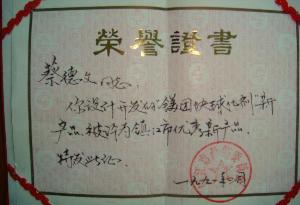 榮譽證書
蔡德文同志:
你设计开发的"镁团块球化剂"新
产品被评为镇江市优秀新产品.
特发此证.
一九九一年 月